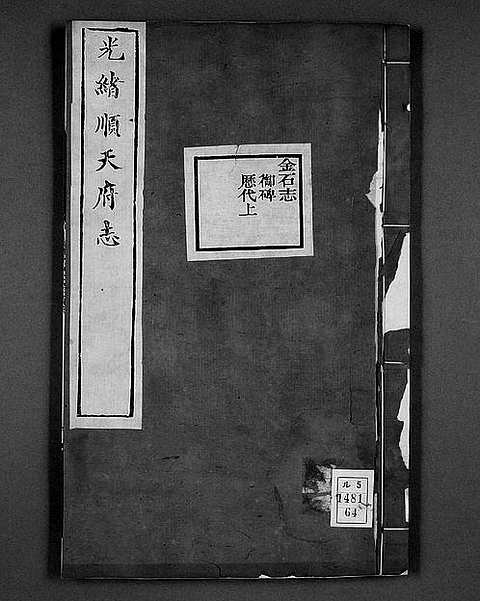 光緒順天府志
金石志
御碑
歷代上
ル 5
1481
64